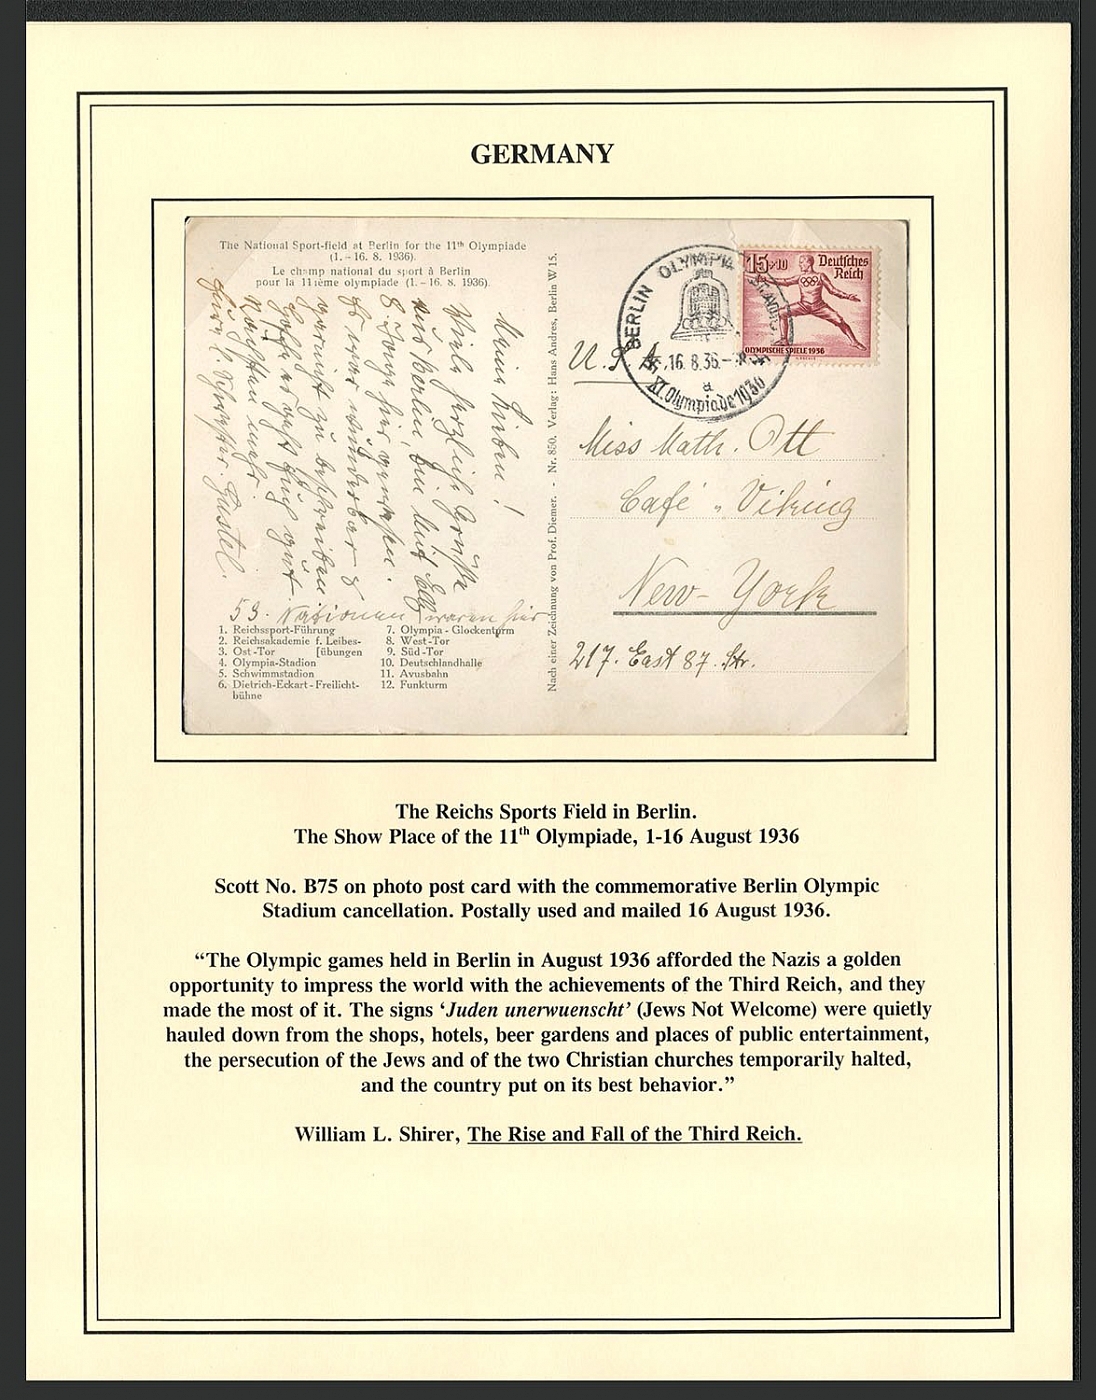 GERMANY
The National Sport-field at Berlin for the 11th Olympiade
(1. - 16. 8. 1936).
Le champ national du sport à Berlin
pour la 11ième olympiade (1. - 16. 8. 1936).
Meine Lieben!
Viele herzliche Grüße
aus Berlin, bin mit
8 Tage hier gewesen.
Es war wunderbar &
zu beschreiben
Hoffe es geht Euch gut.
53. Nationen waren hier
1. Reichssport-Führung
2. Reichsakademie f. Leibes-
3. Ost-Tor [übungen
4. Olympia-Stadion
5. Schwimmstadion
6. Dietrich-Eckart-Freilicht-
bühne
7. Olympia-Glockenturm
8. West-Tor
9. Süd-Tor
10. Deutschlandhalle
11. Avusbahn
12. Funkturm
Nach einer Zeichnung von Prof. Diemer. - Nr. 850. Verlag: Hans Andres, Berlin W 15.
BERLIN OLYMPIA-STADION
16.8.36
a
XI. Olympiade 1936
15+10
Deutsches
Reich
OLYMPISCHE SPIELE 1936
U.S.A.
Miss Math. Ott
Café „Viking
New-York
217. East 87. Str.
The Reichs Sports Field in Berlin.
The Show Place of the 11th Olympiade, 1-16 August 1936
Scott No. B75 on photo post card with the commemorative Berlin Olympic
Stadium cancellation. Postally used and mailed 16 August 1936.
“The Olympic games held in Berlin in August 1936 afforded the Nazis a golden
opportunity to impress the world with the achievements of the Third Reich, and they
made the most of it. The signs ‘Juden unerwuenscht’ (Jews Not Welcome) were quietly
hauled down from the shops, hotels, beer gardens and places of public entertainment,
the persecution of the Jews and of the two Christian churches temporarily halted,
and the country put on its best behavior.”
William L. Shirer, The Rise and Fall of the Third Reich.